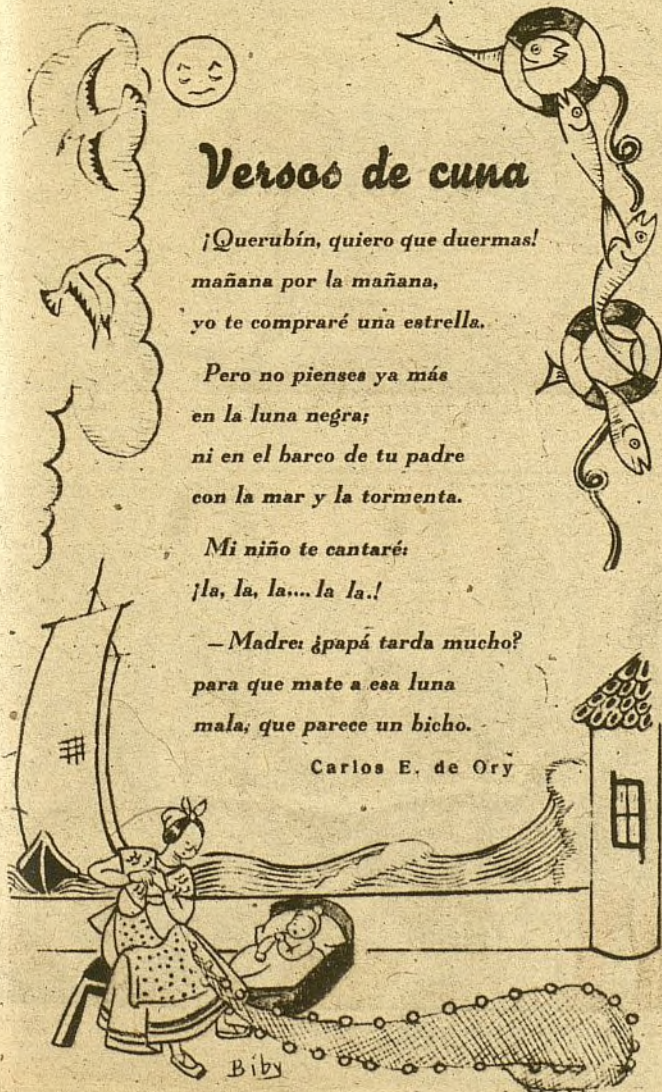 Versos de cuna
¡Querubín, quiero que duermas!
mañana por la mañana,
yo te compraré una estrella.
Pero no pienses ya más
en la luna negra;
ni en el barco de tu padre
con la mar y la tormenta.
Mi niño te cantaré:
¡la, la, la.... la la.!
— Madre: ¿papá tarda mucho?
para que mate a esa luna
mala; que parece un bicho.
Carlos E. de Ory
Biby